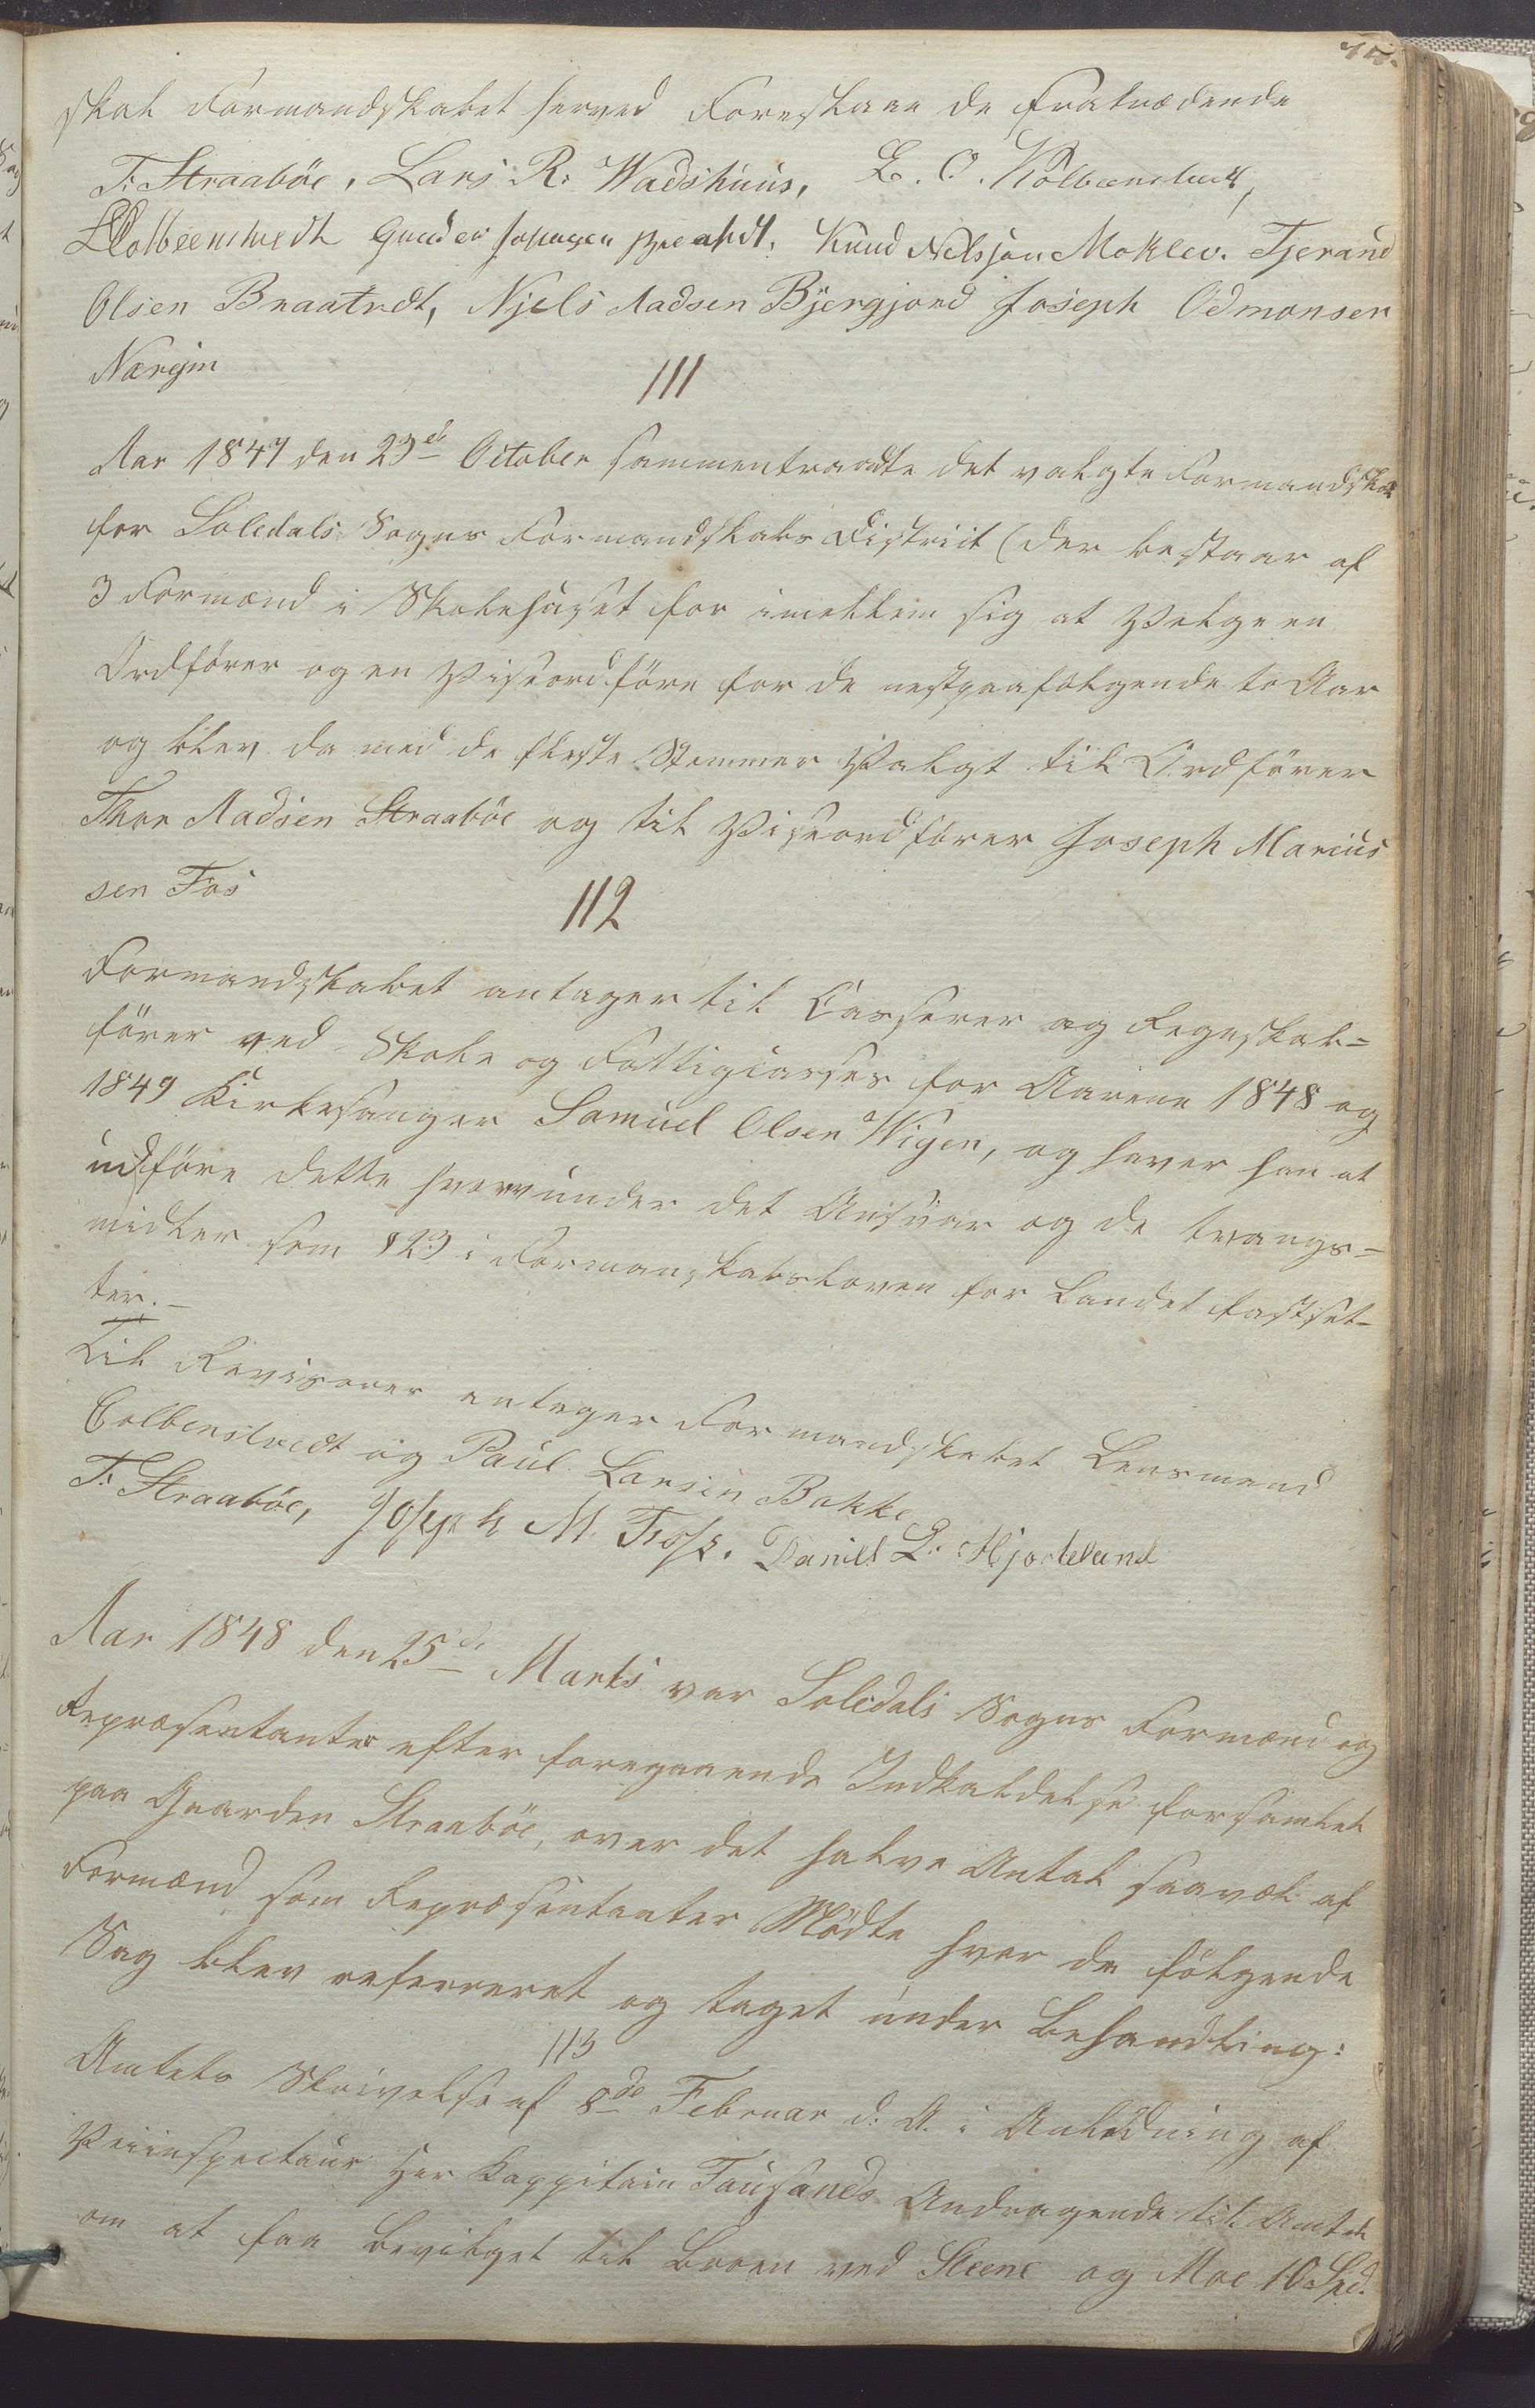 skal Formandskabet herved Foreslaae de Fratrædende
T. Straaböe, Lars R. Wadshuus, L. O. Kolbenstvedt,
Kolbeenstvedt Gunder Johnsen Knud Nelsson Moklev. Tjerand
Olsen Braatvedt, Njels Aadsen Bjergjord Joseph Odmonsen
Nærejm
111
Aar 1847 den 23de October sammentraadte det valgte Formandskab
for Soledals Sogns Formandskabs District (der bestaar af
3 Formænd i Skolehuset for imellem sig at Velge en
Ordförer og en Viseordföre for de nestpaafölgende to Aar
og blev da med de fleste Stemmer Valgt til Ordförer
Thor Madsen Straaböe og til Viseordförer Joseph Marius
sen Fos
112
Formandskabet antager til Casserer og Regnskab=
förer ved Skole og Fattigcasses for Aarene 1848 og
1849 Kirkesanger Samuel Olsen Wigen, og haver han at
udföre dette hverv under det Ansvar og de tvangs-
midler som § 23 i Formanskabsloven for Landet fastset-
ter.-
Til Revisorer antager Formandskabet Lensmand
Colbenstvedt og Paul Larsen Bakke
T. Straaböe, Joseph M. Foss. Daniel L. Hjorteland
Aar 1848 den 25de Marts var Soledals Sogns Formænd og
Repræsentanter efter foregaaende Indkaldelse forsamlet
paa Gaarden Straaböe, over det halve Antal saavel af
Formænd som Repræsentanter Mödte hvor da fölgende
Sag blev refereret og taget under Behandling:
113
Amtets Skrivelse af 8de Februar d. A. i Anledning af
Veiinspecteur Her Kappitain Fausands Andragende til Amtet
om at faa bevilget til Broen ved Steene og Moe 10 Spd.